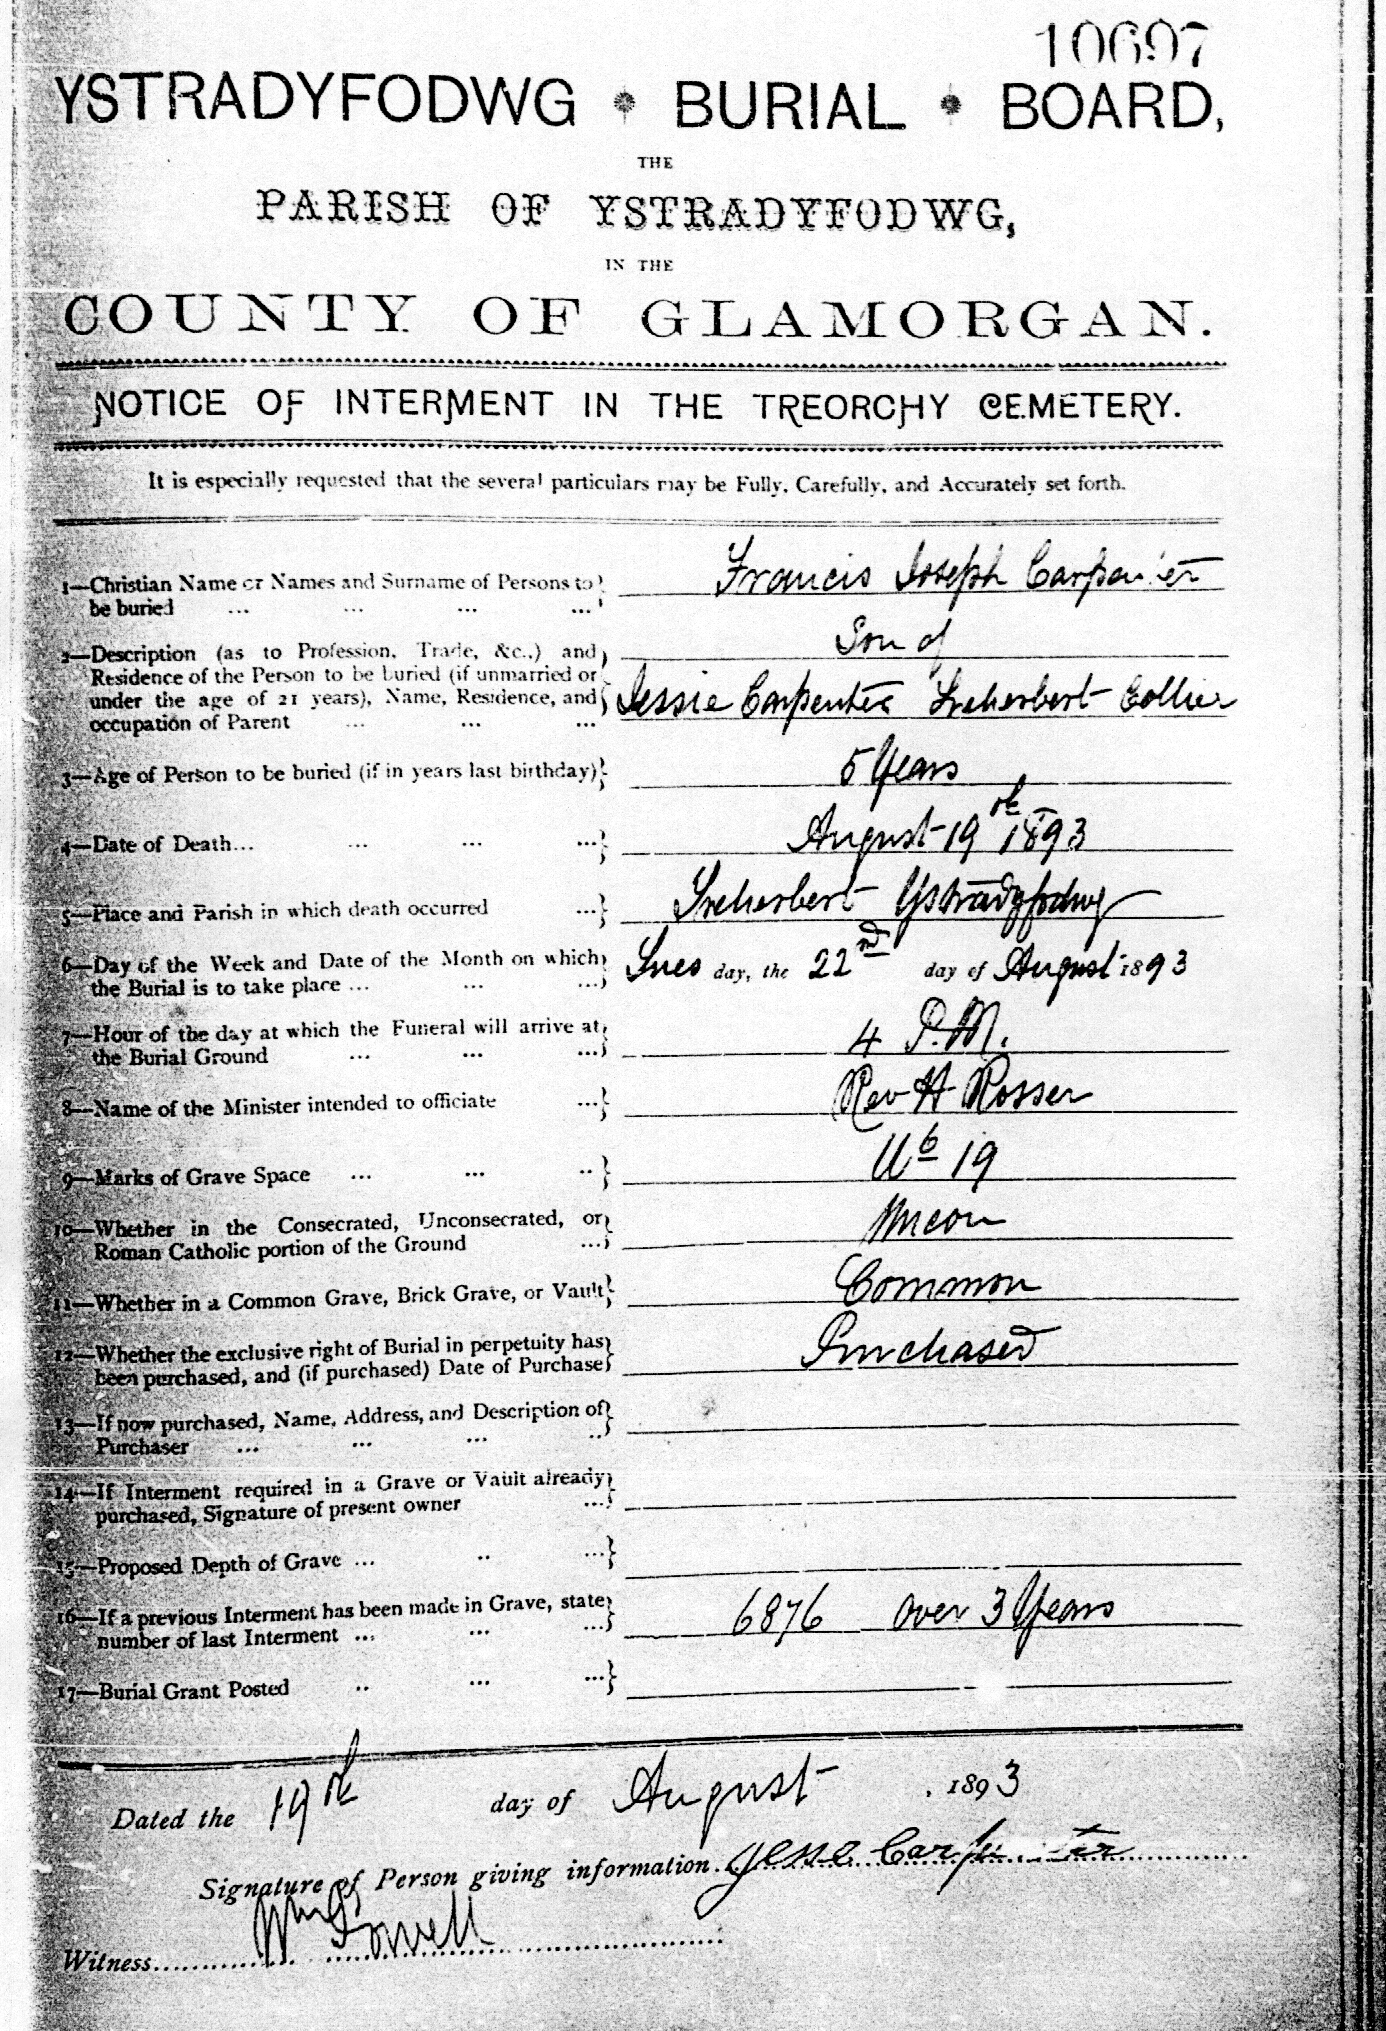 10697
YSTRADYFODWG • BURIAL • BOARD,
THE
PARISH OF YSTRADYFODWG,
IN THE
COUNTY OF GLAMORGAN.
NOTICE OF INTERMENT IN THE TREORCHY CEMETERY.
It is especially requested that the several particulars may be Fully, Carefully, and Accurately set forth.
1—Christian Name or Names and Surname of Persons to be buried ... ... ... ... Francis Joseph Carpenter
2—Description (as to Profession, Trade, &c.,) and Son of
Residence of the Person to be buried (if unmarried or
under the age of 21 years), Name, Residence, and Jessie Carpenter Treherbert Collier
occupation of Parent ... ... ...
3—Age of Person to be buried (if in years last birthday) 5 Years
4—Date of Death... ... ... ... August 19th 1893
5—Place and Parish in which death occurred ... Treherbert Ystradyfodwg
6—Day of the Week and Date of the Month on which Tues day, the 22nd day of August 1893
the Burial is to take place ... ... ...
7—Hour of the day at which the Funeral will arrive at
the Burial Ground ... ... ... 4 P.M.
8—Name of the Minister intended to officiate ... Rev H Rosser
9—Marks of Grave Space ... ... .. Ub 19
10—Whether in the Consecrated, Unconsecrated, or Uncon
Roman Catholic portion of the Ground ...
11—Whether in a Common Grave, Brick Grave, or Vault Common
12—Whether the exclusive right of Burial in perpetuity has Purchased
been purchased, and (if purchased) Date of Purchase
13—If now purchased, Name, Address, and Description of
Purchaser ... ... ... ..
14—If Interment required in a Grave or Vault already
purchased, Signature of present owner ...
15—Proposed Depth of Grave ... .. ...
16—If a previous Interment has been made in Grave, state 6876 over 3 Years
number of last Interment ... ... ...
17—Burial Grant Posted .. ... ...
Dated the 19th day of August . 1893
Signature of Person giving information. Jesse Carpenter
Witness